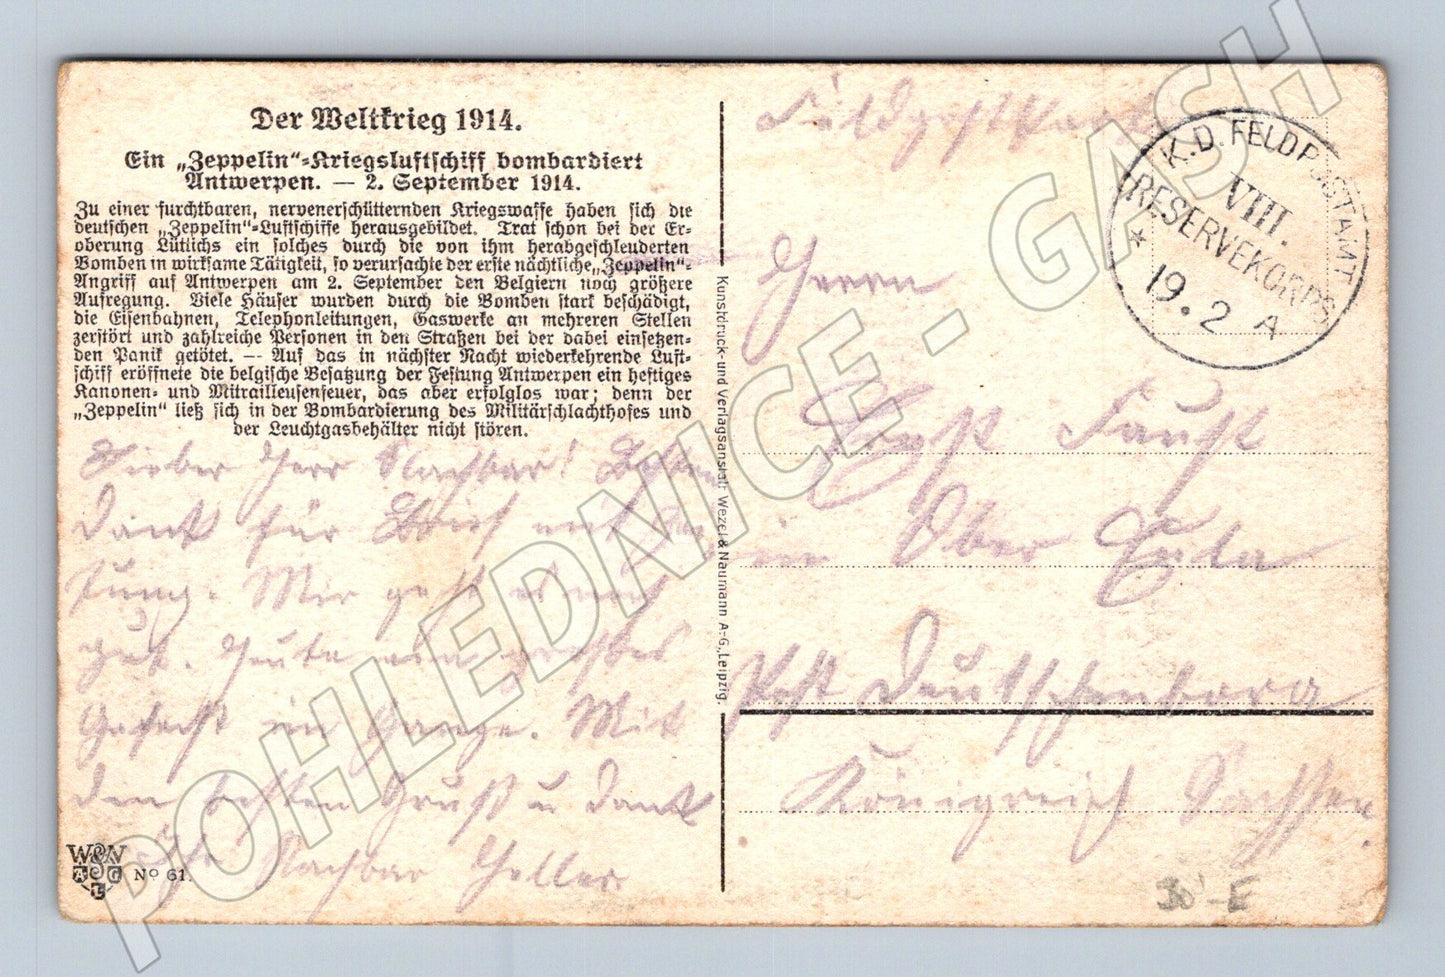 Der Weltkrieg 1914.
Ein „Zeppelin“-Kriegsluftschiff bombardiert
Antwerpen. — 2. September 1914.
Zu einer furchtbaren, nervenerschütternden Kriegswaffe haben sich die
deutschen „Zeppelin“-Luftschiffe herausgebildet. Trat schon bei der Er-
oberung Lüttichs ein solches durch die von ihm herabgeschleuderten
Bomben in wirksame Tätigkeit, so verursachte der erste nächtliche „Zeppelin“-
Angriff auf Antwerpen am 2. September den Belgiern noch größere
Aufregung. Viele Häuser wurden durch die Bomben stark beschädigt,
die Eisenbahnen, Telephonleitungen, Gaswerke an mehreren Stellen
zerstört und zahlreiche Personen in den Straßen bei der dabei einsetzen-
den Panik getötet. — Auf das in nächster Nacht wiederkehrende Luft-
schiff eröffnete die belgische Besatzung der Festung Antwerpen ein heftiges
Kanonen- und Mitrailleusenfeuer, das aber erfolglos war; denn der
„Zeppelin“ ließ sich in der Bombardierung des Militärschlachthofes und
der Leuchtgasbehälter nicht stören.
Lieber Herr Nachbar! Besten
Dank für Brief und Zei
tung. Mir geht es noch
gut. Heute ein großes
Gefecht im Gange. Mit
den besten Gruß u Dank
Ihr Nachbar Heller
W&N
A L G
Nº 61.
Kunstdruck- und Verlagsanstalt Wezel & Naumann A.-G., Leipzig.
Feldpostkarte
K.D. FELDPOSTAMT
VIII.
RESERVEKORPS
* 19.2 A
Herrn
Ernst Faust
in Ober Eula
Post Deutschenbora
Königreich Sachsen
30 - E
POHLEDNICE - GASH